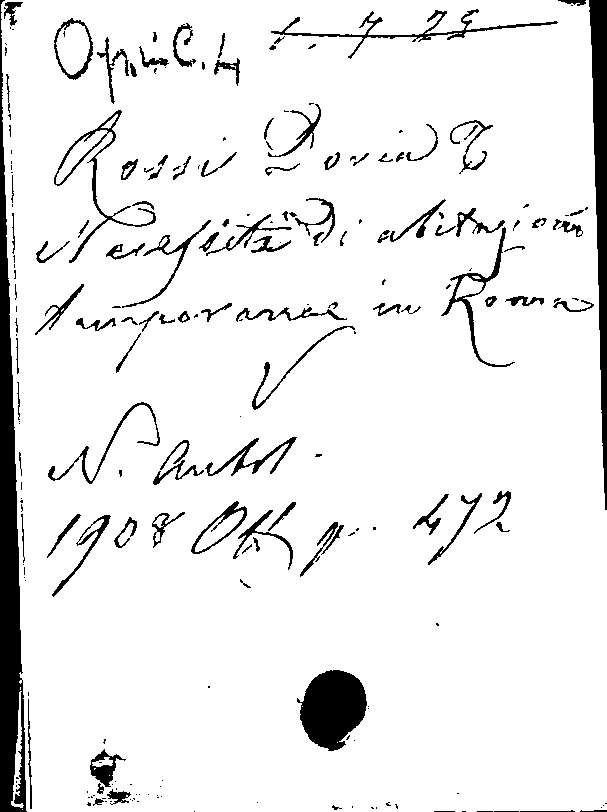 Opusc. 4 1. 7 25
Rossi Doria T
Necessità di abitazioni
temporanee in Roma
N. Antol.
1908 Ott p. 472